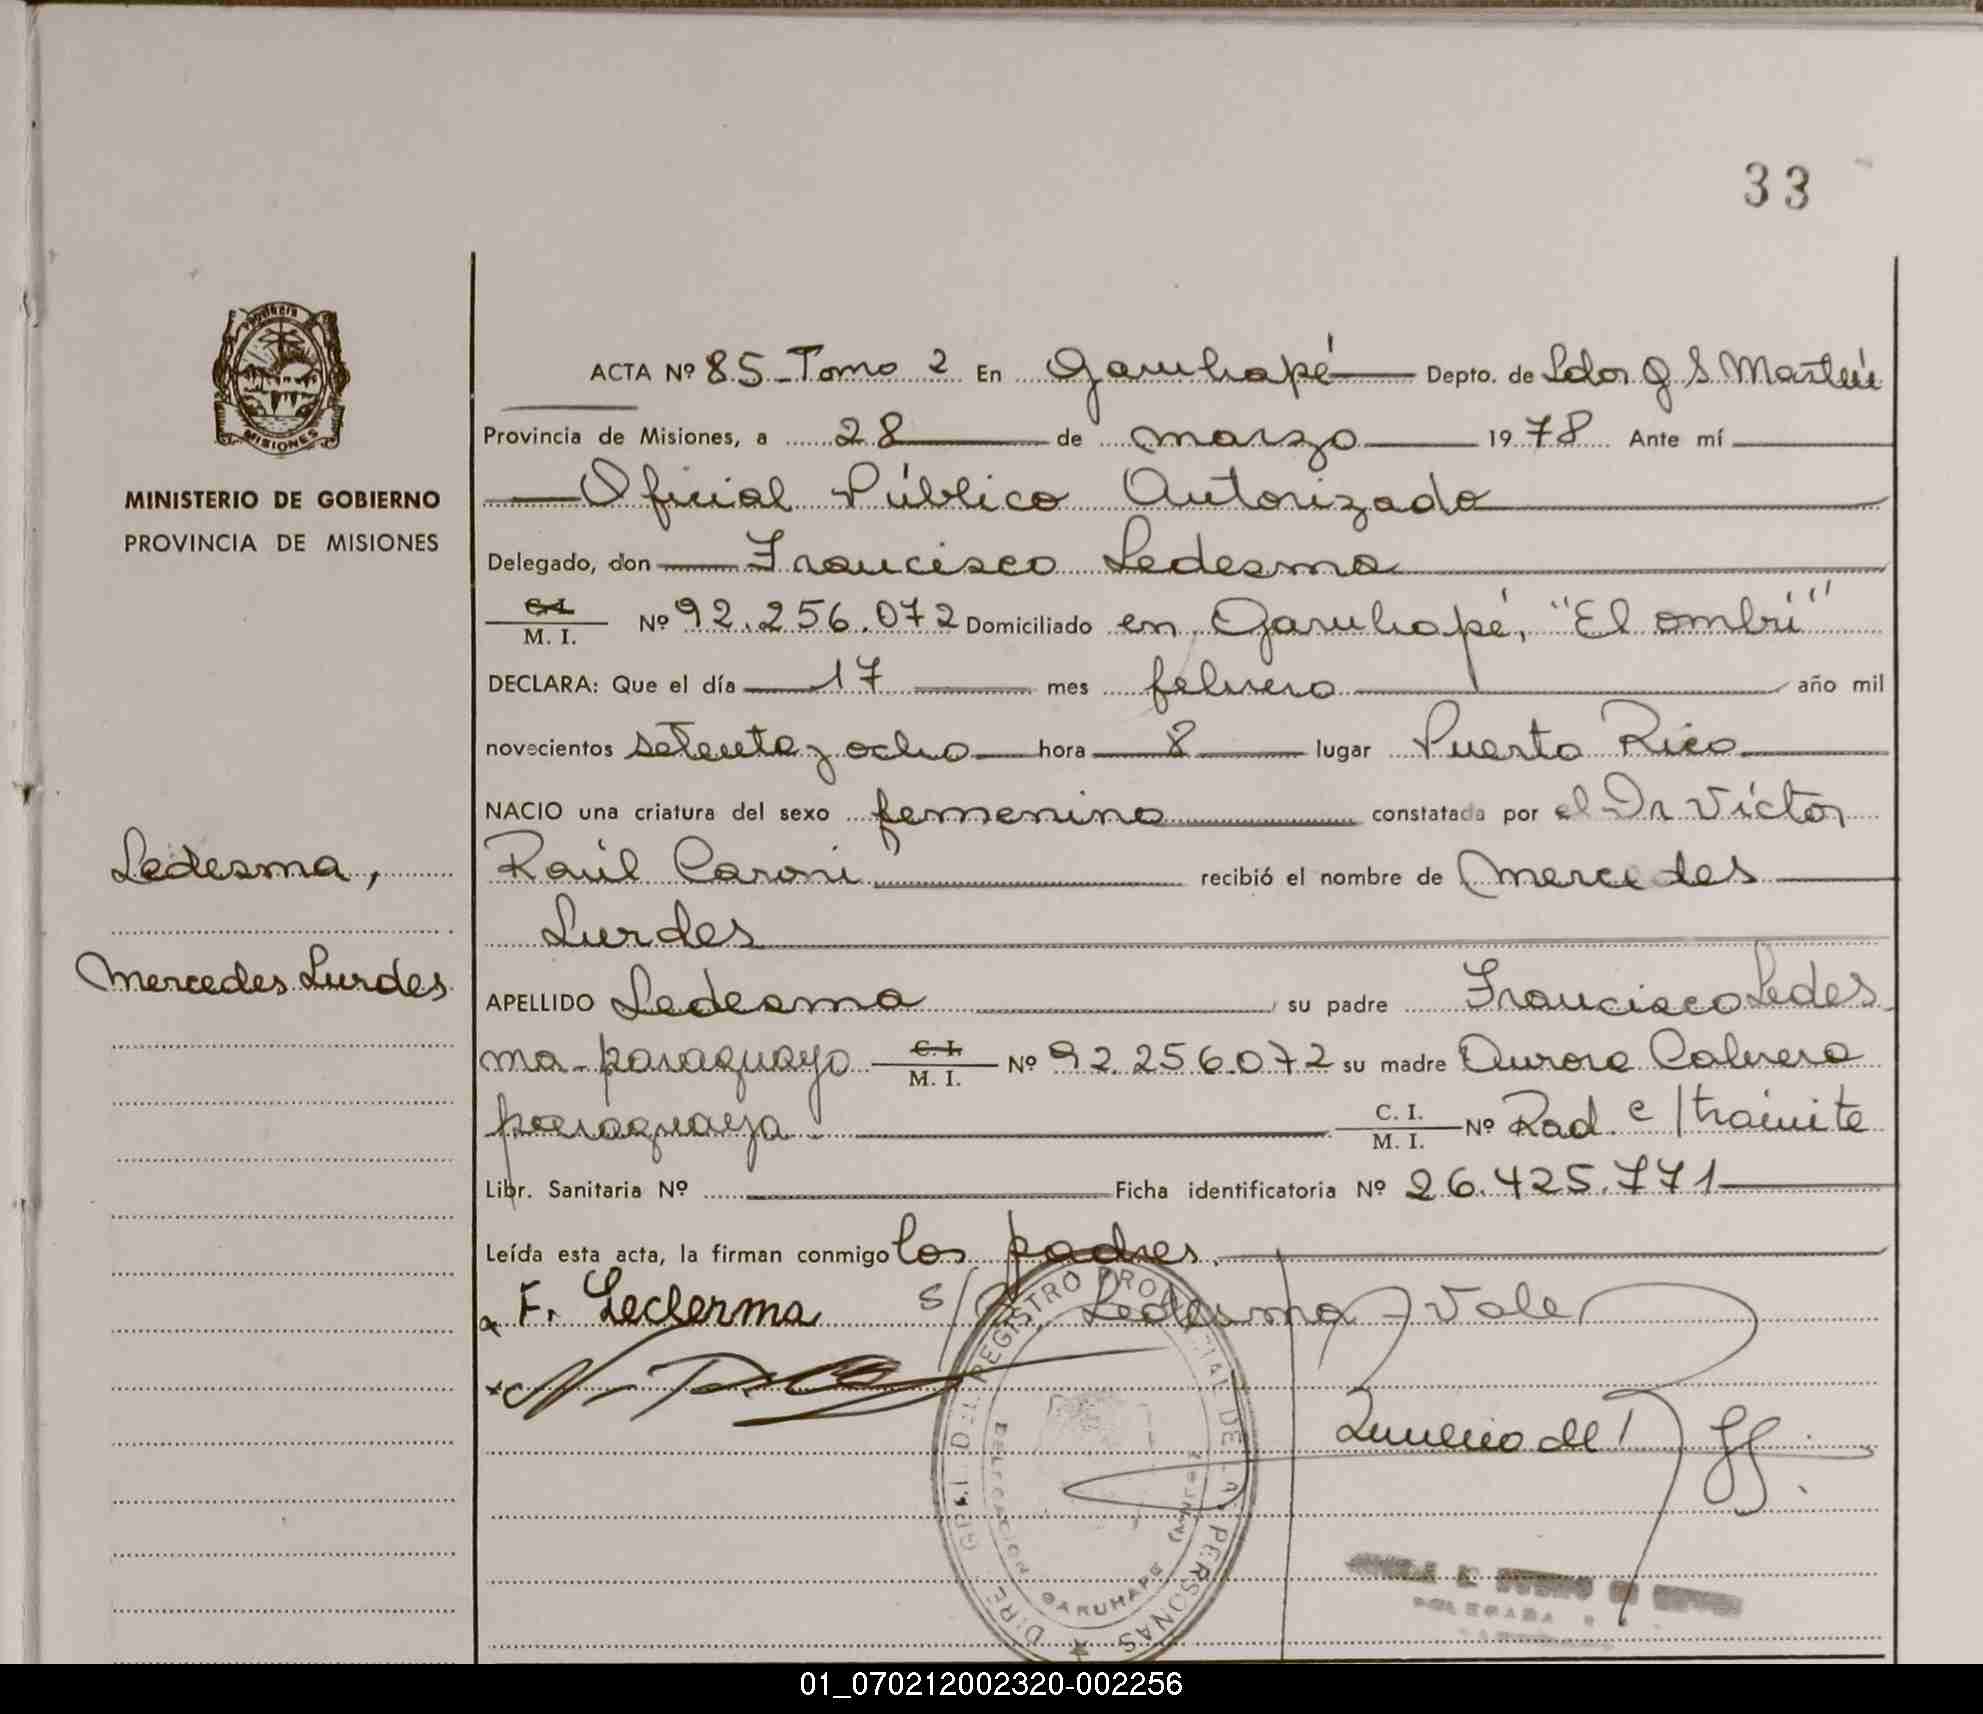 33
MISIONES
MINISTERIO DE GOBIERNO
PROVINCIA DE MISIONES
Ledesma,
Mercedes Lurdes
ACTA Nº 85 - Tomo 2 En Garuhapé Depto. de Ldor G S Martín
Provincia de Misiones, a 28 de marzo 1978 Ante mí
Oficial Público Autorizado
Delegado, don Francisco Ledesma
C.I. / M. I. Nº 92.256.072 Domiciliado en Garuhapé, "El ombú"
DECLARA: Que el día 17 mes febrero año mil
novecientos setenta y ocho hora 8 lugar Puerto Rico
NACIO una criatura del sexo femenino constatada por el Dr Víctor
Raúl Caroni recibió el nombre de Mercedes
Lurdes
APELLIDO Ledesma su padre Francisco Ledes
ma - paraguayo C. I. / M. I. Nº 92.256.072 su madre Aurora Cabrera
paraguaya C. I. / M. I. Nº Rad. e/trámite
Libr. Sanitaria Nº Ficha identificatoria Nº 26.425.771
Leída esta acta, la firman conmigo los padres.
F. Leclerma S/ Ledesma - Vale
DIRE. GRAL. DEL REGISTRO PROVINCIAL DE LAS PERSONAS
DELEGACION GARUHAPE (MNES)
DELEGADA
01_070212002320-002256